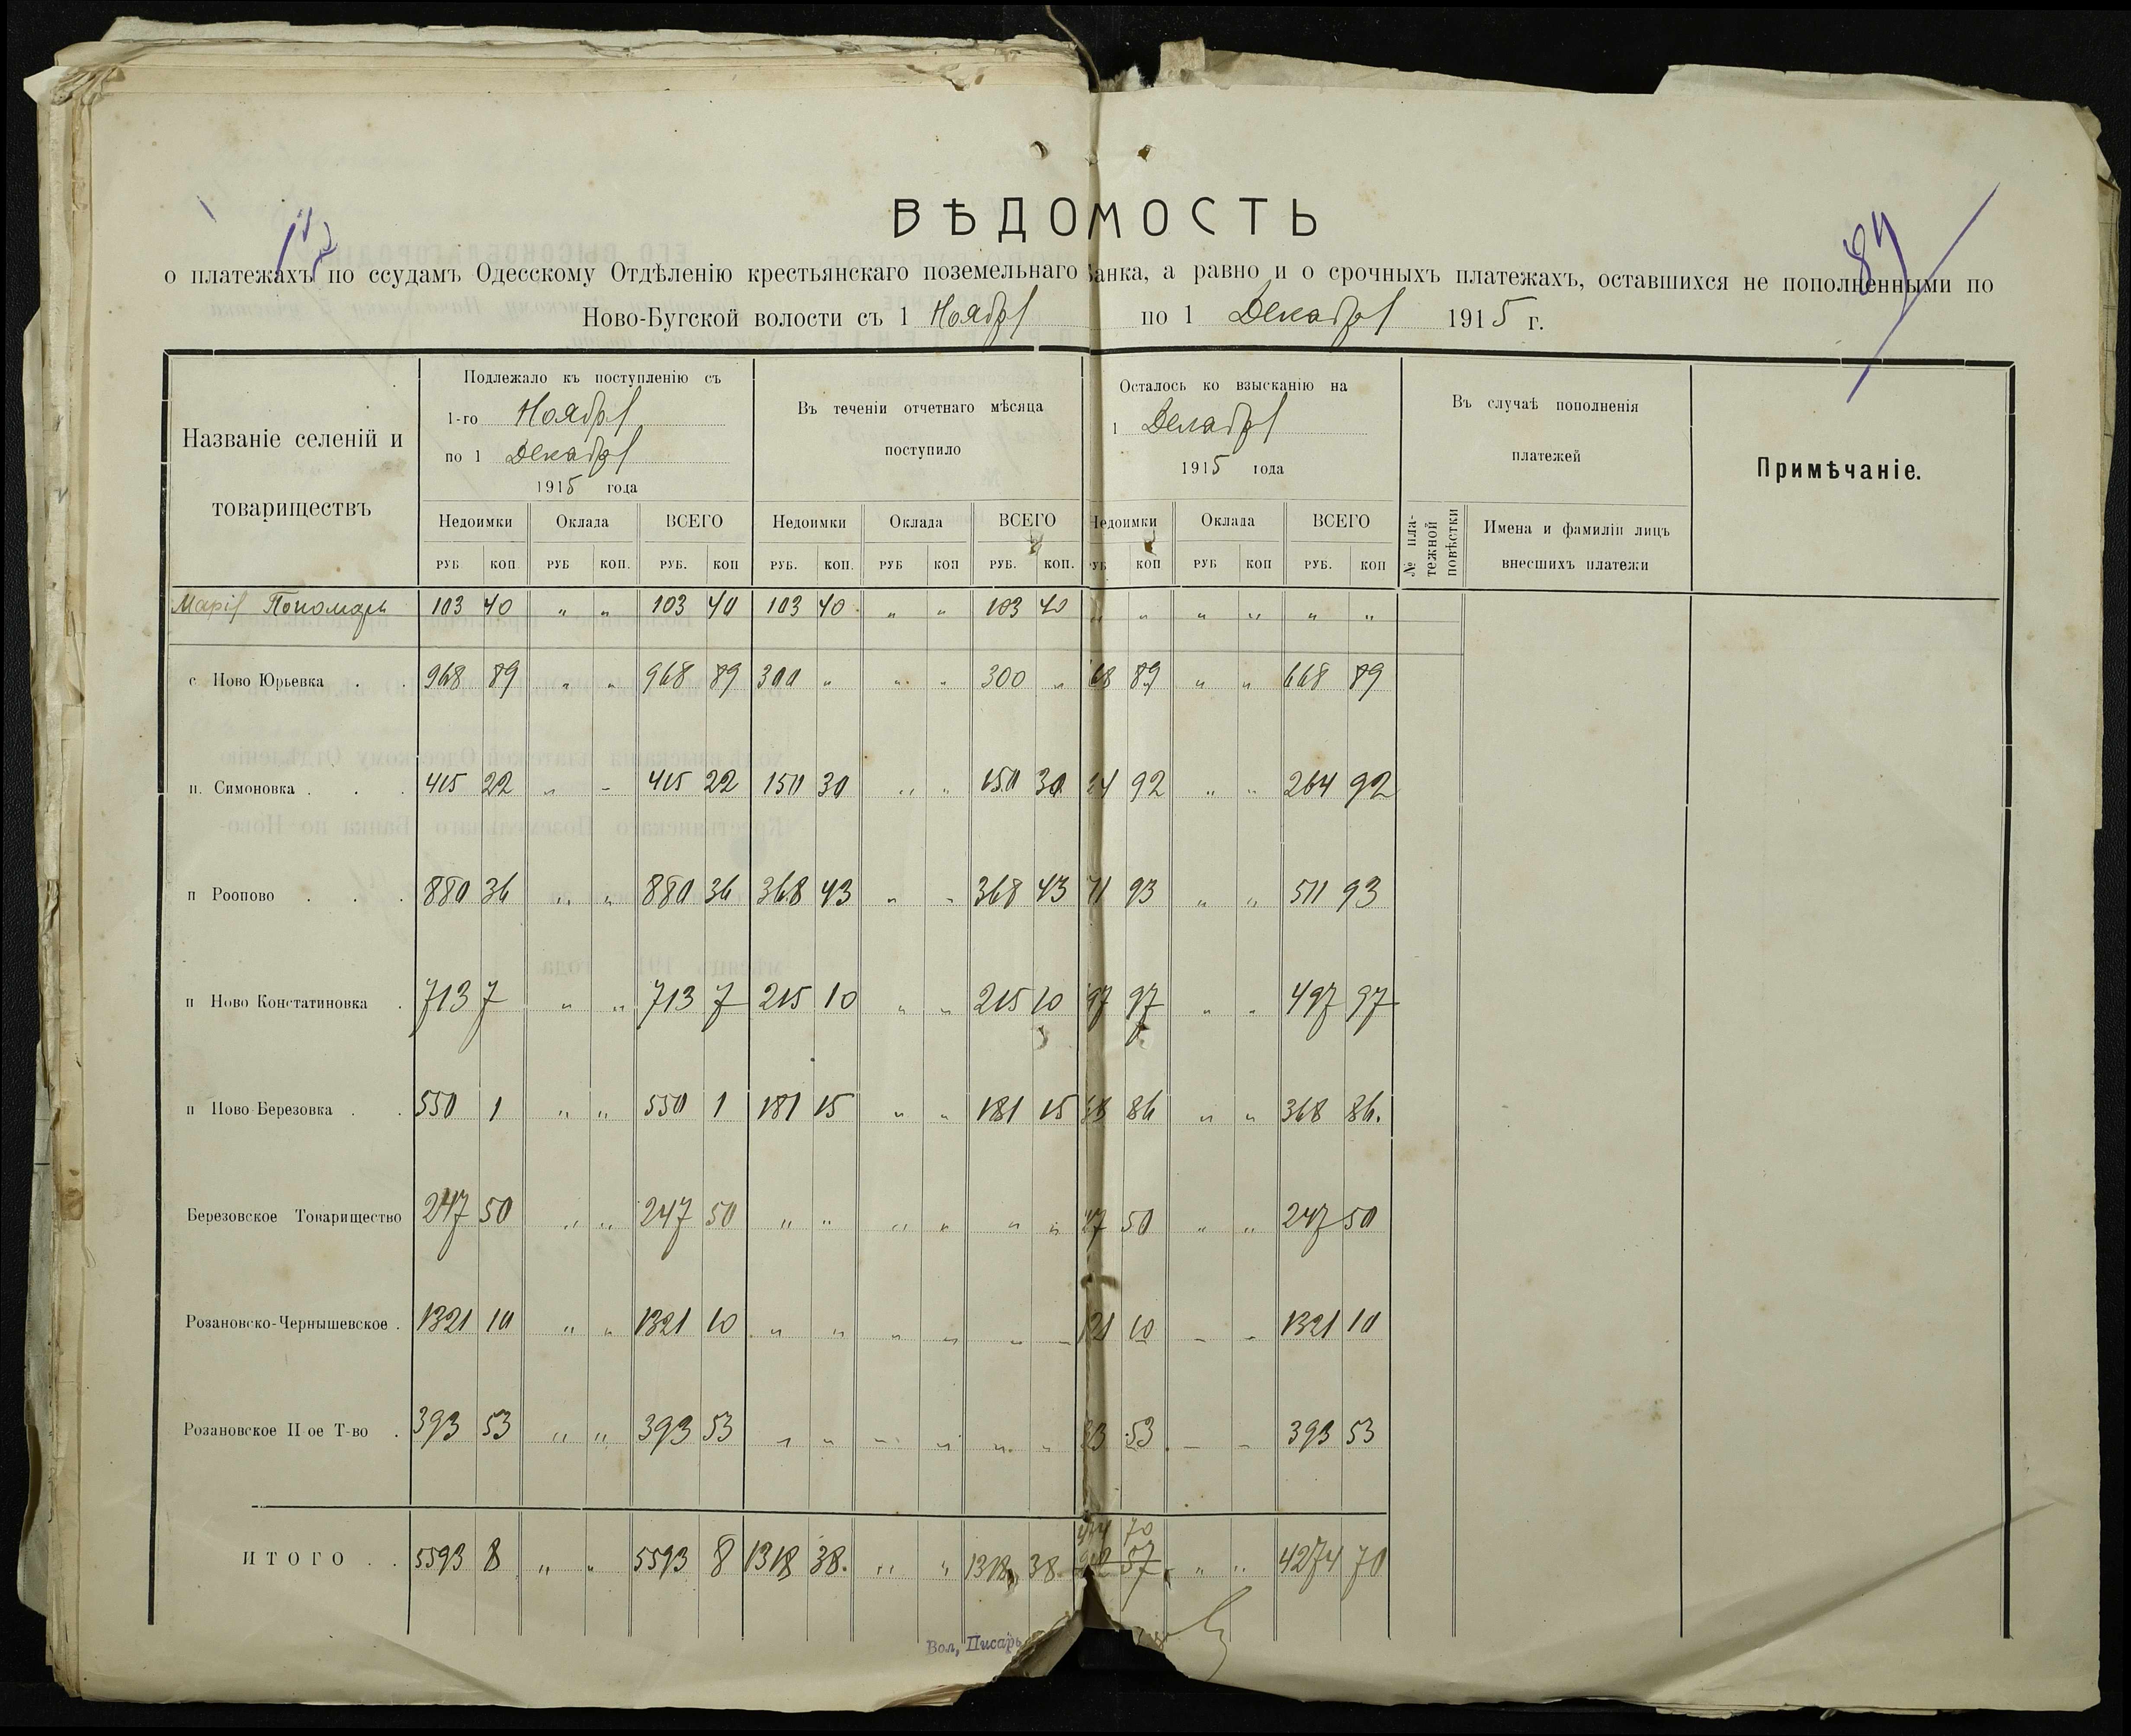 ВѢДОМОСТЬ
о платежахъ по ссудамъ Одесскому Отдѣленію крестьянскаго поземельнаго Банка, а равно и о срочныхъ платежахъ, оставшихся не пополненными по
Ново-Бугской волости съ 1 Ноября по 1 Декабря 1915 г.
Названіе селеній и товариществъ
Подлежало къ поступленію съ
1-го Ноября
по 1 Декабря
1915 года
Въ теченіи отчетнаго мѣсяца
поступило
Осталось ко взысканію на
1 Декабря
1915 года
Въ случаѣ пополненія
платежей
Примѣчаніе.
Недоимки Оклада ВСЕГО Недоимки Оклада ВСЕГО Недоимки Оклада ВСЕГО
№ пла-
тежной
повѣстки
Имена и фамиліи лицъ
внесшихъ платежи
РУБ КОП. РУБ КОП. РУБ. КОП РУБ. КОП. РУБ КОП РУБ. КОП. РУБ КОП РУБ КОП РУБ. КОП
Марія Пономарь 103 40 „ „ 103 40 103 40 „ „ 103 40 „ „ „ „ „ „
с Ново Юрьевка . . 968 89 „ „ 968 89 300 „ „ „ 300 „ 68 89 „ „ 668 89
п. Симоновка . . . 415 22 „ „ 415 22 150 30 „ „ 150 30 64 92 „ „ 264 92
п Роопово . . . 880 36 „ „ 880 36 368 43 „ „ 368 43 11 93 „ „ 511 93
п Ново Констатиновка . 713 7 „ „ 713 7 215 10 „ „ 215 10 97 97 „ „ 497 97
п Ново-Березовка . . 550 1 „ „ 550 1 181 15 „ „ 181 15 68 86 „ „ 368 86.
Березовское Товарищество 247 50 „ „ 247 50 „ „ „ „ „ „ 47 50 „ „ 247 50
Розановско-Чернышевское . 1321 10 „ „ 1321 10 „ „ „ „ „ „ 1321 10 „ „ 1321 10
Розановское II ое Т-во . 393 53 „ „ 393 53 „ „ „ „ „ „ 393 53 „ „ 393 53
70
ИТОГО . . 5593 8 „ „ 5593 8 1318 38. „ „ 1318 38 57 „ „ 4274 70
Вол, Писарь